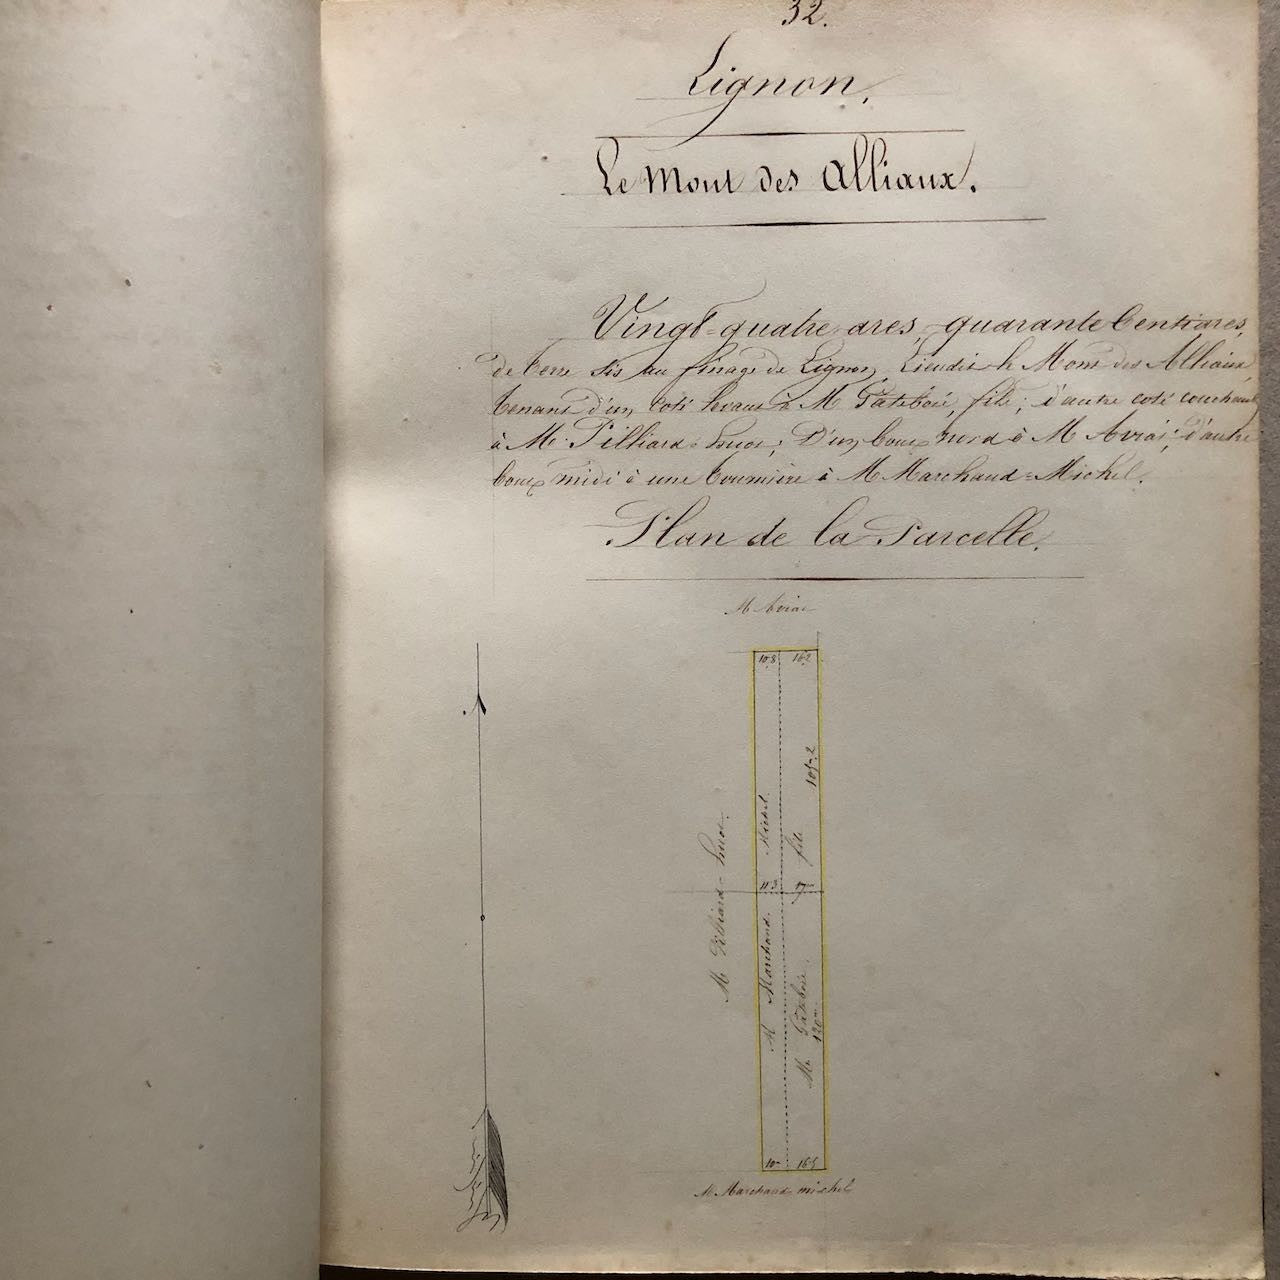 32.
Lignon,
Le Mont des Alliaux.
Vingt-quatre ares, quarante Centiares,
de terre sis au finage de Lignon, Lieudit le Mont des Alliaux,
tenant d'un coté levant à M Pateboié, fils; d'autre coté couchant
à M. Pilliard=huot; D'un bout nord à M Aviat; d'autre
bout midi à une tournière à M Marchand=Michel.
Plan de la Parcelle.
M Aviat
10.8 16.2
105.2
M Pilliard=huot.
M Marchand Michel
M Pateboié fils
11.3 17m
120m
10m 16.5
M Marchand michel